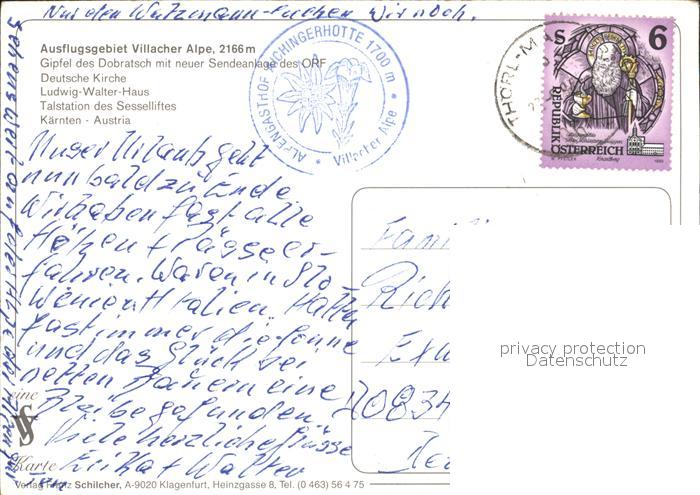 Nur den Watzmann suchen wir noch.
Ausflugsgebiet Villacher Alpe, 2166 m
Gipfel des Dobratsch mit neuer Sendeanlage des ORF
Deutsche Kirche
Ludwig-Walter-Haus
Talstation des Sesselliftes
Kärnten - Austria
ALPENGASTHOF AICHINGERHÜTTE 1700 m
Villacher Alpe
THÖRL-M
S 6
REPUBLIK
ÖSTERREICH
Unser Urlaub geht
nun bald zu Ende
Wir haben fast alle
Höhen + Pässe er-
fahren. Waren in Slo-
wenien + Italien. Hatten
fast immer die Sonne
und das Glück bei
netten Bauern eine
Bleibe gefunden.
Viele herzliche Grüsse
Erika + Walter
Fami
Rich
70834
privacy protection
Datenschutz
eine
Karte
Verlag Franz Schilcher, A-9020 Klagenfurt, Heinzgasse 8, Tel. (0 463) 56 4 75